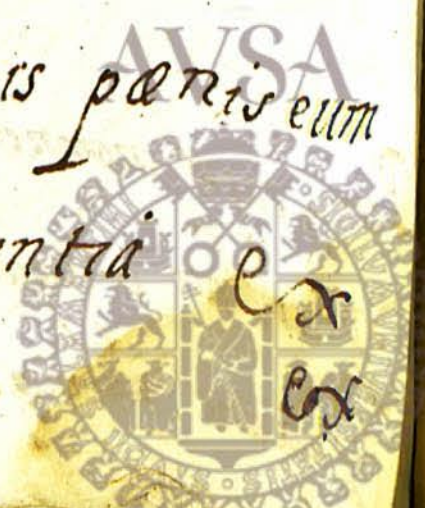 AVSA
is pœnis eum
ntiâ ex
ex